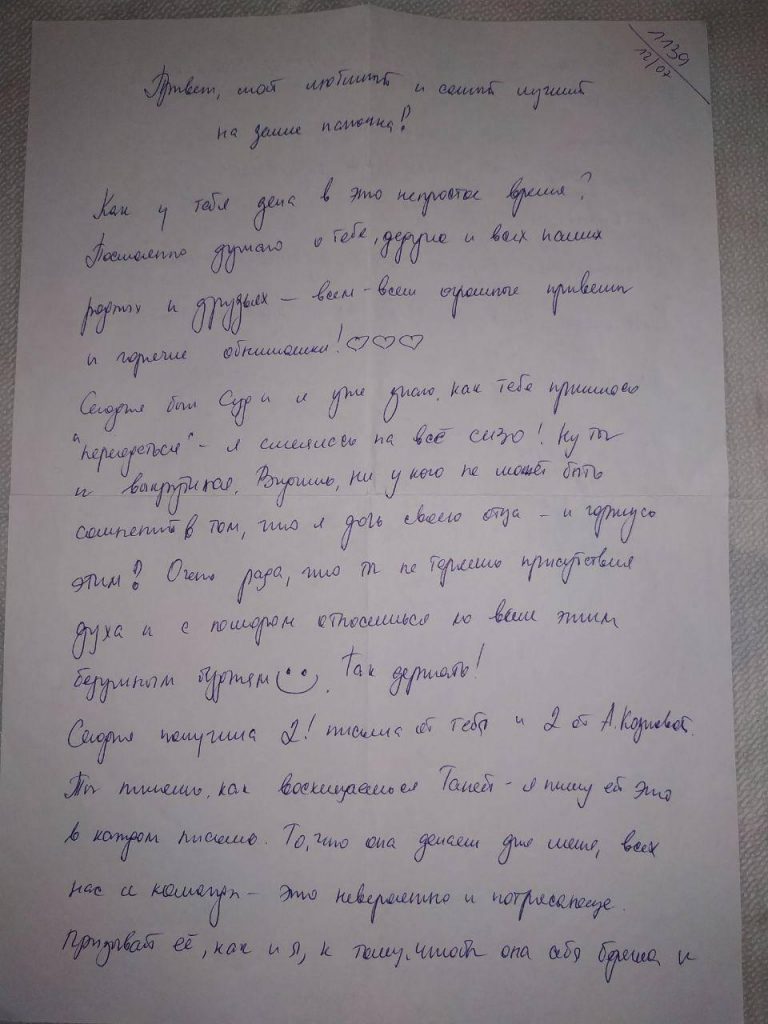 1139
12/07
Привет, мой любимый и самый лучший
на земле папочка!
Как у тебя дела в это непростое время?
Постоянно думаю о тебе, дедуле и всех наших
родных и друзьях – всем-всем огромные приветы
и горячие обнимашки! ♡♡♡
Сегодня был Суд и я уже знаю, как тебе пришлось
"переодеться" – я смеялась на всё СИЗО! Ну ты
и выкрутился. Видишь, ни у кого не может быть
сомнений в том, что я дочь своего отца – и горжусь
этим! Очень рада, что ты не теряешь присутствия
духа и с юмором относишься ко всем этим
безумным бурям. Так держать!
Сегодня получила 2! письма от тебя и 2 от А. Козловой.
Ты пишешь, как восхищаешься Таней – я пишу ей это
в каждом письме. То, что она делает для меня, всех
нас и команды – это невероятно и потрясающе.
Призывай её, как и я, к тому, чтобы она себя берегла и